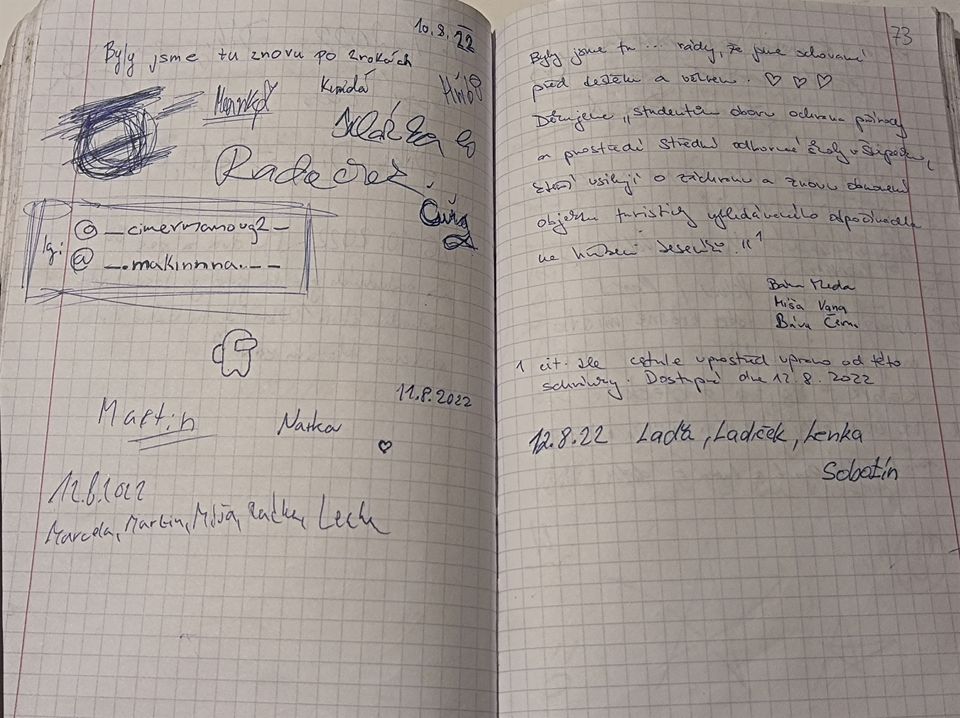 10.8.22
Byly jsme tu znovu po 2 rokách
Kimídá
Radeček
Ig: @_cimermanovg2_
@_.makinnna.___
11.8.2022
Martin Natka
12.8.2022
Marcela, Martin, Míša, Radka, Lenka
73
Byly jsme tu ... rády, že jsme schovaní
před deštěm a větrem. ♡ ♡ ♡
Děkujeme „studentům oboru ochrana přírody
a prostředí Střední odborné školy v Šumperku,
kteří usilují o záchranu a znovu obnovení
objektu turisticky vyhledávaného odpočívadla
na hřebeni Jeseníků "1
Míša Vana
Bára Černá
1 cit. dle cetule uprostřed vpravo od této
schránky. Dostupné dne 12.8.2022
12.8.22 Laďa, Ladíček, Lenka
Sobotín